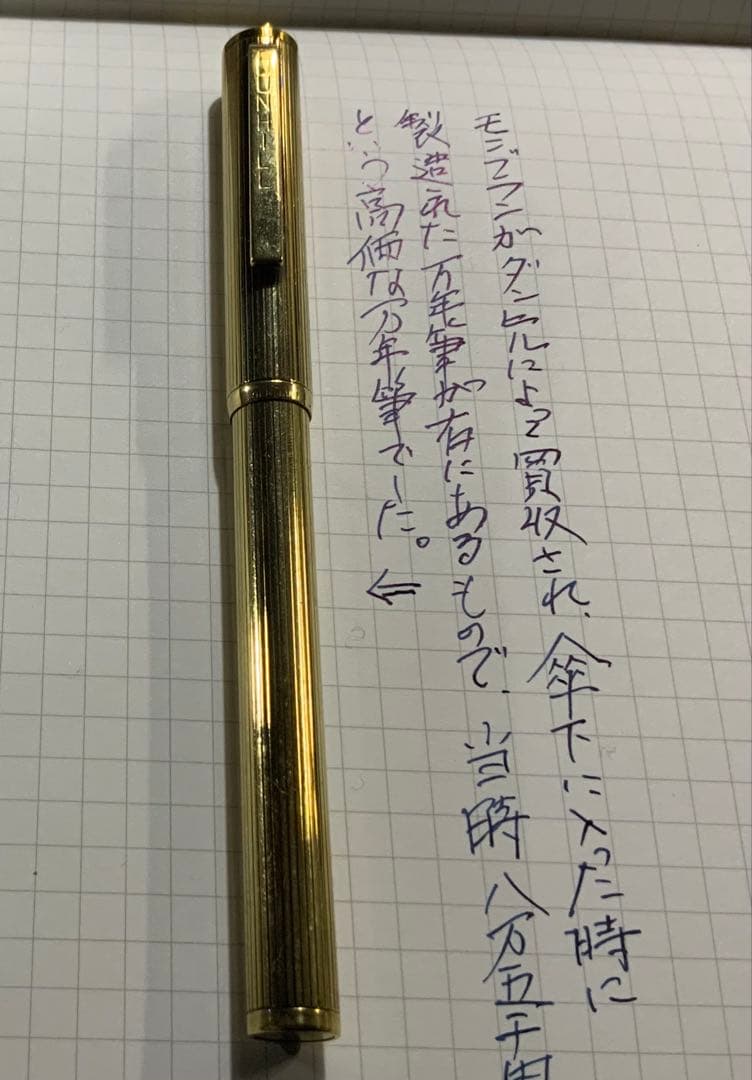 DUNHILL
モンブランがダンヒルによって買収され、傘下に入った時に
製造された万年筆が左にあるもので、当時八万五千円
という高価な万年筆でした。⇐